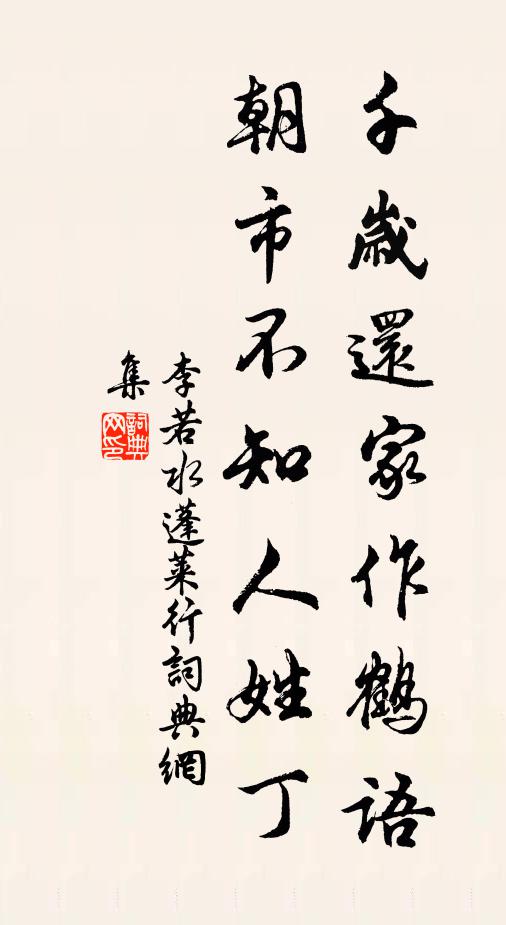 千歲還家作鶴語
朝市不知人姓丁
李若水蓬萊行詞典網
集
詞典
网印